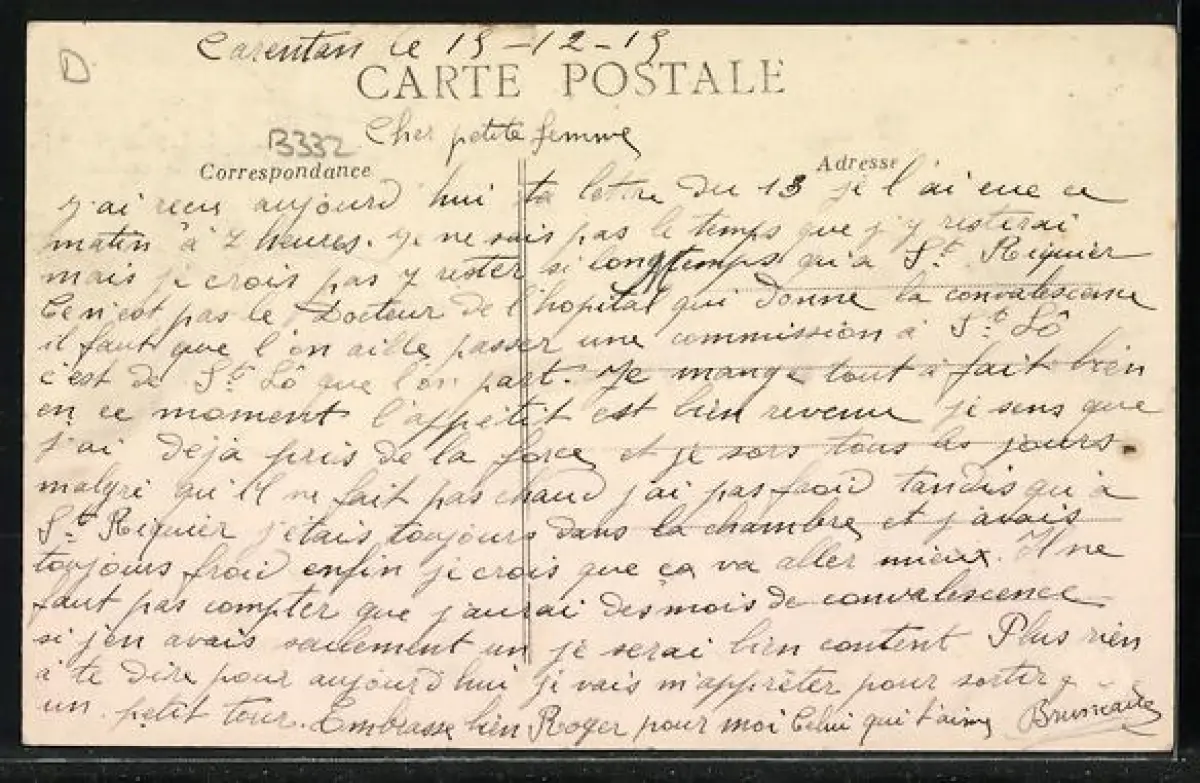 D
Carentan le 15-12-15
CARTE POSTALE
B332
Cher petite femme
Correspondance
Adresse
j'ai recu aujourd hui ta lettre du 13 je l'ai eue ce
matin à 7 heures. Je ne sais pas le temps que j'y resterai
mais je crois pas y rester si longtemps qu'a St. Riquier
Ce n'est pas le Docteur de l'hopital qui donne la convalescense
il faut que l'on aille passer une commission à St. Lô
c'est de St. Lô que l'on part. Je mange tout à fait bien
en ce moment l'appétit est bien revenu je sens que
j'ai déjà pris de la force et je sors tous les jours.
malgré qu'il ne fait pas chaud j'ai pas froid tandis qu'à
St. Riquier j'étais toujours dans la chambre et j'avais
toujours froid enfin je crois que ça va aller mieux. Il ne
faut pas compter que j'aurai des mois de convalescence
si j'en avais seulement un je serai bien content Plus rien
à te dire pour aujourd hui je vais m'apprêter pour sortir
un petit tour. Embrasse bien Roger pour moi Celui qui t'aime